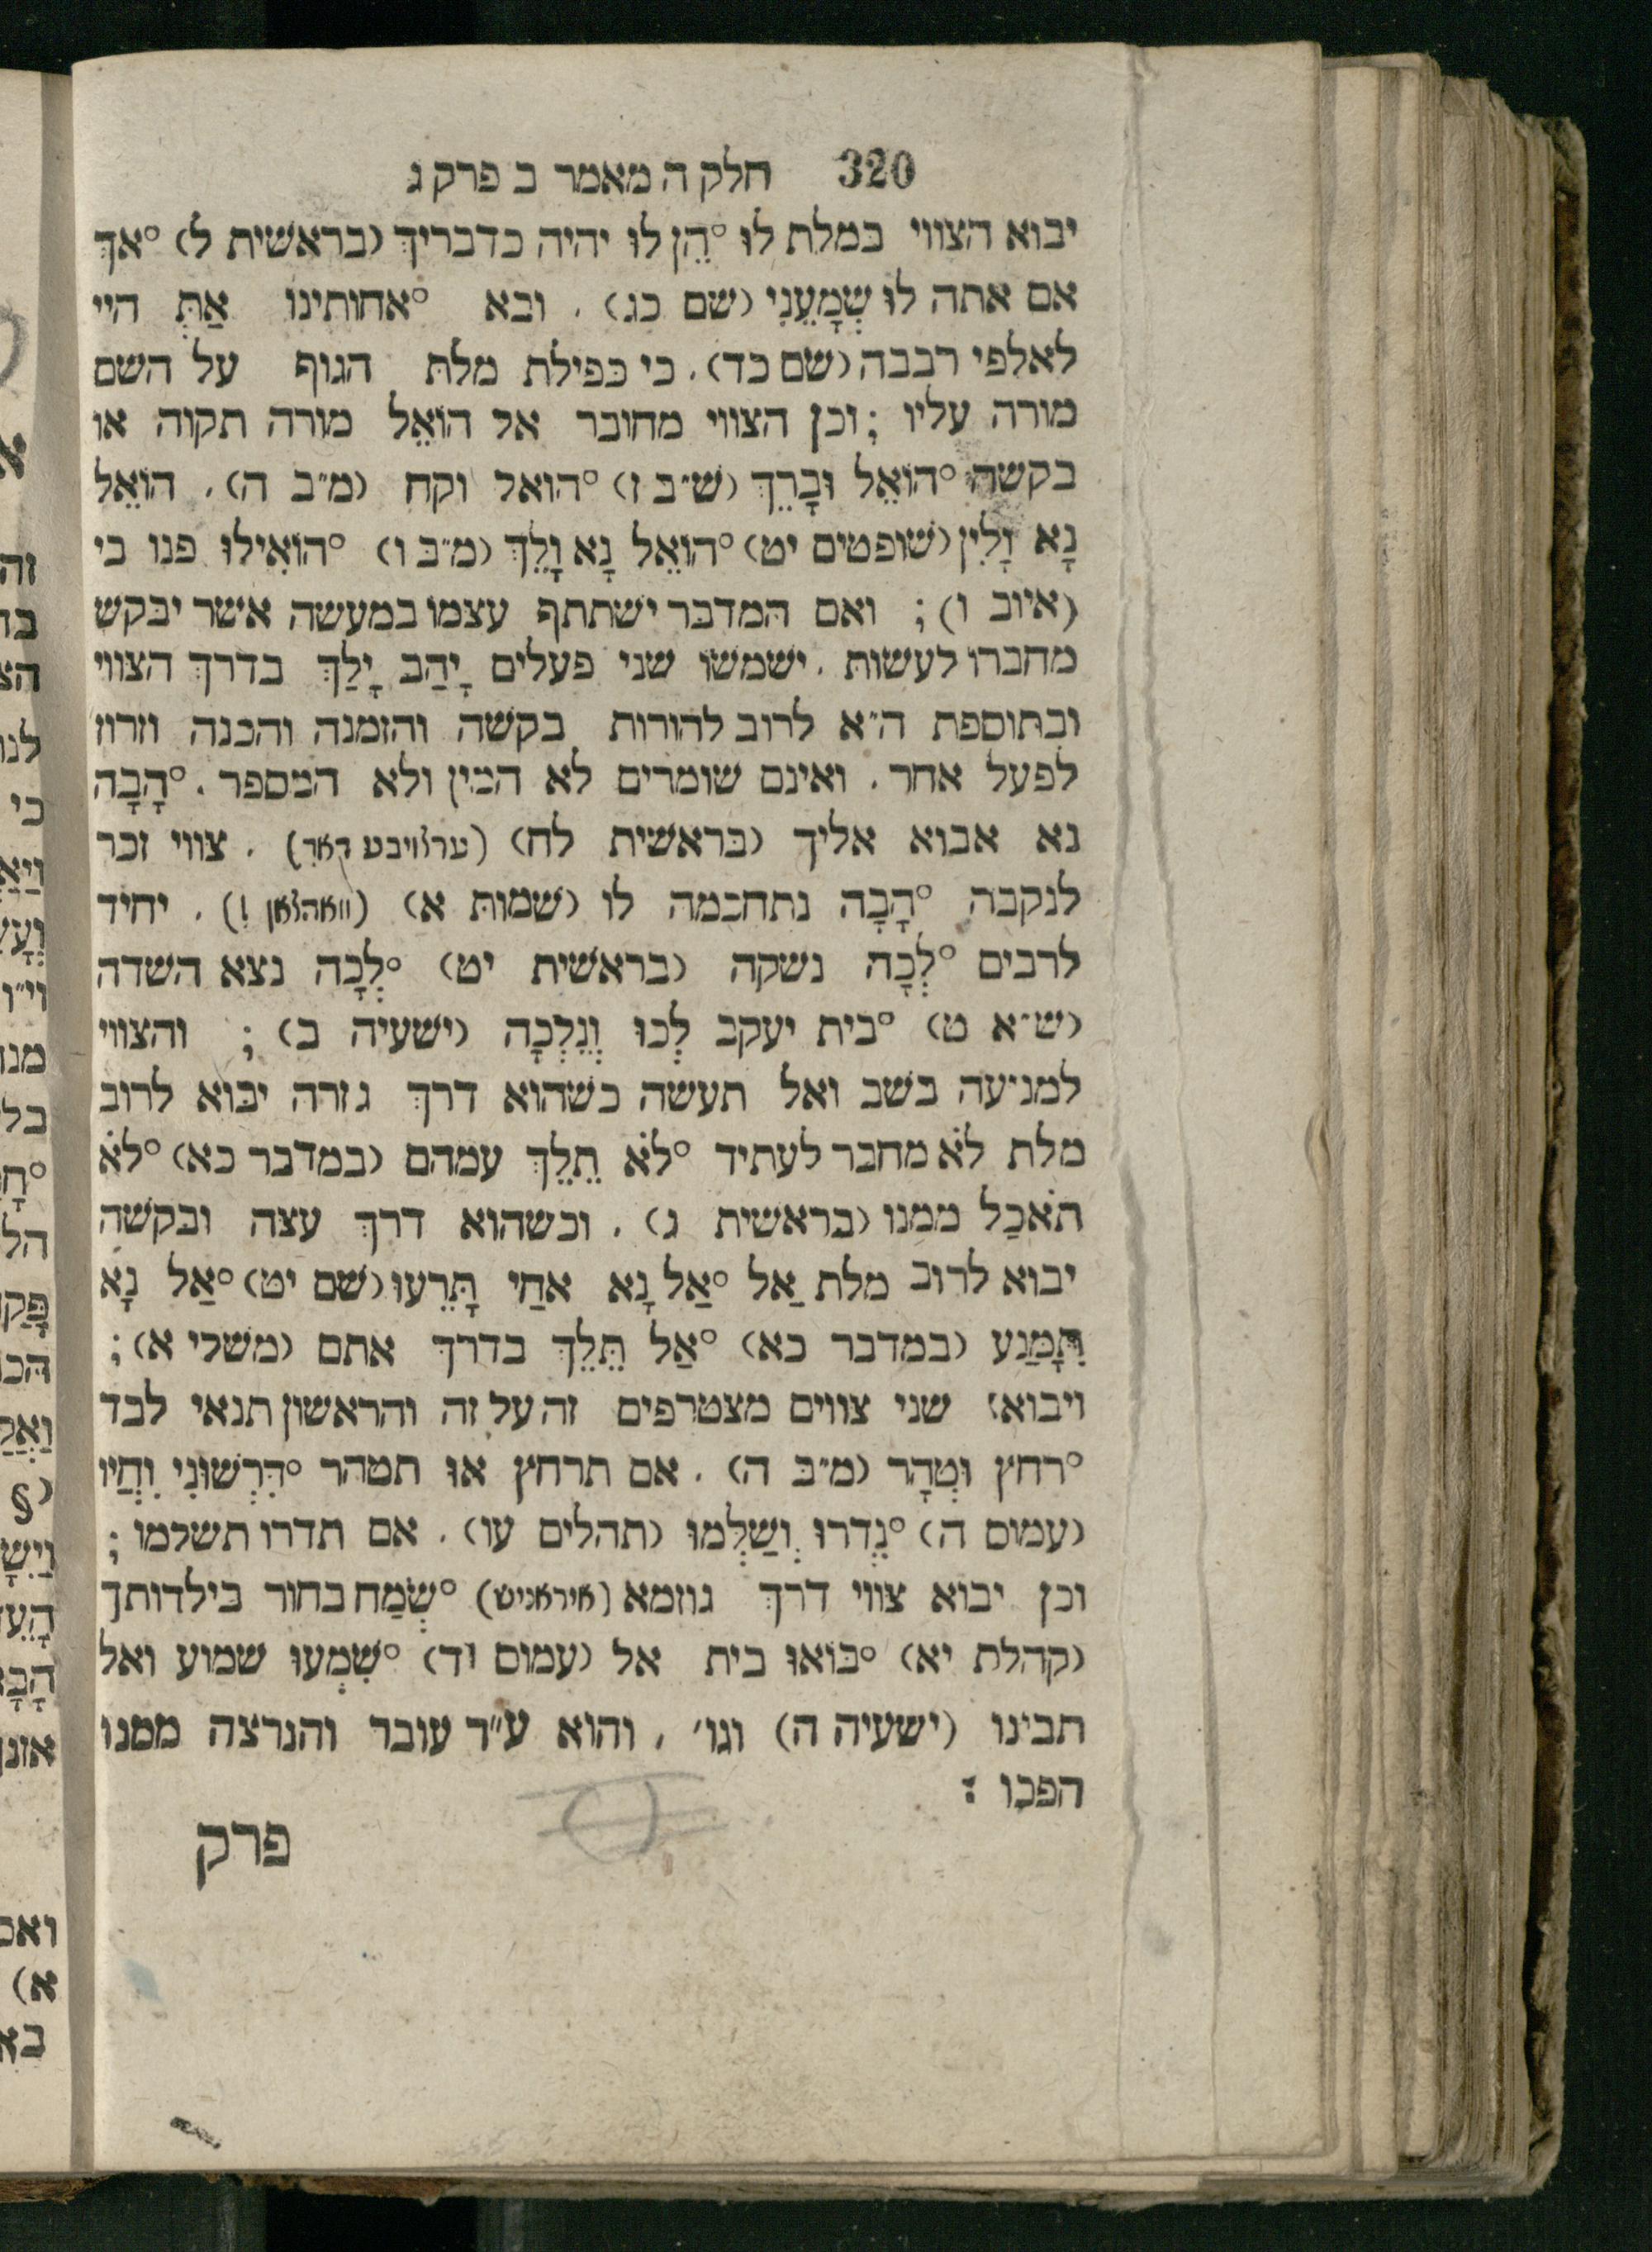 320 חלק ה מאמר ב פרק ג
יבוא הצווי במלת לוּ °הֵן לוּ יהיה כדבריך (בראשית ל) °אך
אם אתה לוּ שְׁמָעֵנִי (שם כג). ובא °אחותינו אַתְּ היי
לאלפי רבבה (שם כד). כי כפילת מלת הגוף על השם
מורה עליו; וכן הצווי מחובר אל הוֹאֵל מורה תקוה או
בקשה °הוֹאֵל וּבָרֵךְ (ש״ב ז) °הואל וקח (מ״ב ה). הוֹאֵל
נָא וְלִין (שופטים יט) °הוֹאֵל נָא וָלֵךְ (מ״ב ו) °הוֹאִילוּ פנו בי
(איוב ו); ואם המדבר ישתתף עצמו במעשה אשר יבקש
מחברו לעשות. ישמשו שני פעלים יָהַב יָלַךְ בדרך הצווי
ובתוספת ה״א לרוב להורות בקשה והזמנה והכנה וזרוז
לפעל אחר. ואינם שומרים לא המין ולא המספר. °הָבָה
נא אבוא אליך (בראשית לח) (ערלויבע דאך). צווי זכר
לנקבה °הָבָה נתחכמה לו (שמות א) (וואהלאן!). יחיד
לרבים °לְכָה נשקה (בראשית יט) °לְכָה נצא השדה
(ש״א ט) °בית יעקב לְכוּ וְנֵלְכָה (ישעיה ב); והצווי
למניעה בשב ואל תעשה כשהוא דרך גזרה יבוא לרוב
מלת לֹא מחבר לעתיד °לֹא תֵלֵךְ עמהם (במדבר כא) °לֹא
תֹאכַל ממנו (בראשית ג). וכשהוא דרך עצה ובקשה
יבוא לרוב מלת אַל °אַל נָא אחַי תָּרֵעוּ (שם יט) °אַל נָא
תִּמָּנַע (במדבר כא) °אַל תֵּלֵךְ בדרך אתם (משלי א);
ויבואו שני צווים מצטרפים זה על זה והראשון תנאי לבד
°רחץ וּטְהָר (מ״ב ה). אם תרחץ אוּ תטהר °דִּרְשׁוּנִי וִחְיוּ
(עמוס ה) °נִדְרוּ וְשַׁלְּמוּ (תהלים עו). אם תדרו תשלמו;
וכן יבוא צווי דרך גוזמא (איראניש) °שְׂמַח בחור בילדותך
(קהלת יא) °בּוֹאוּ בית אל (עמוס וד) °שִׁמְעוּ שמוע ואל
תבינו (ישעיה ה) וגו׳. והוא ע״ד עובר והנרצה ממנו
הפכו:
פרק